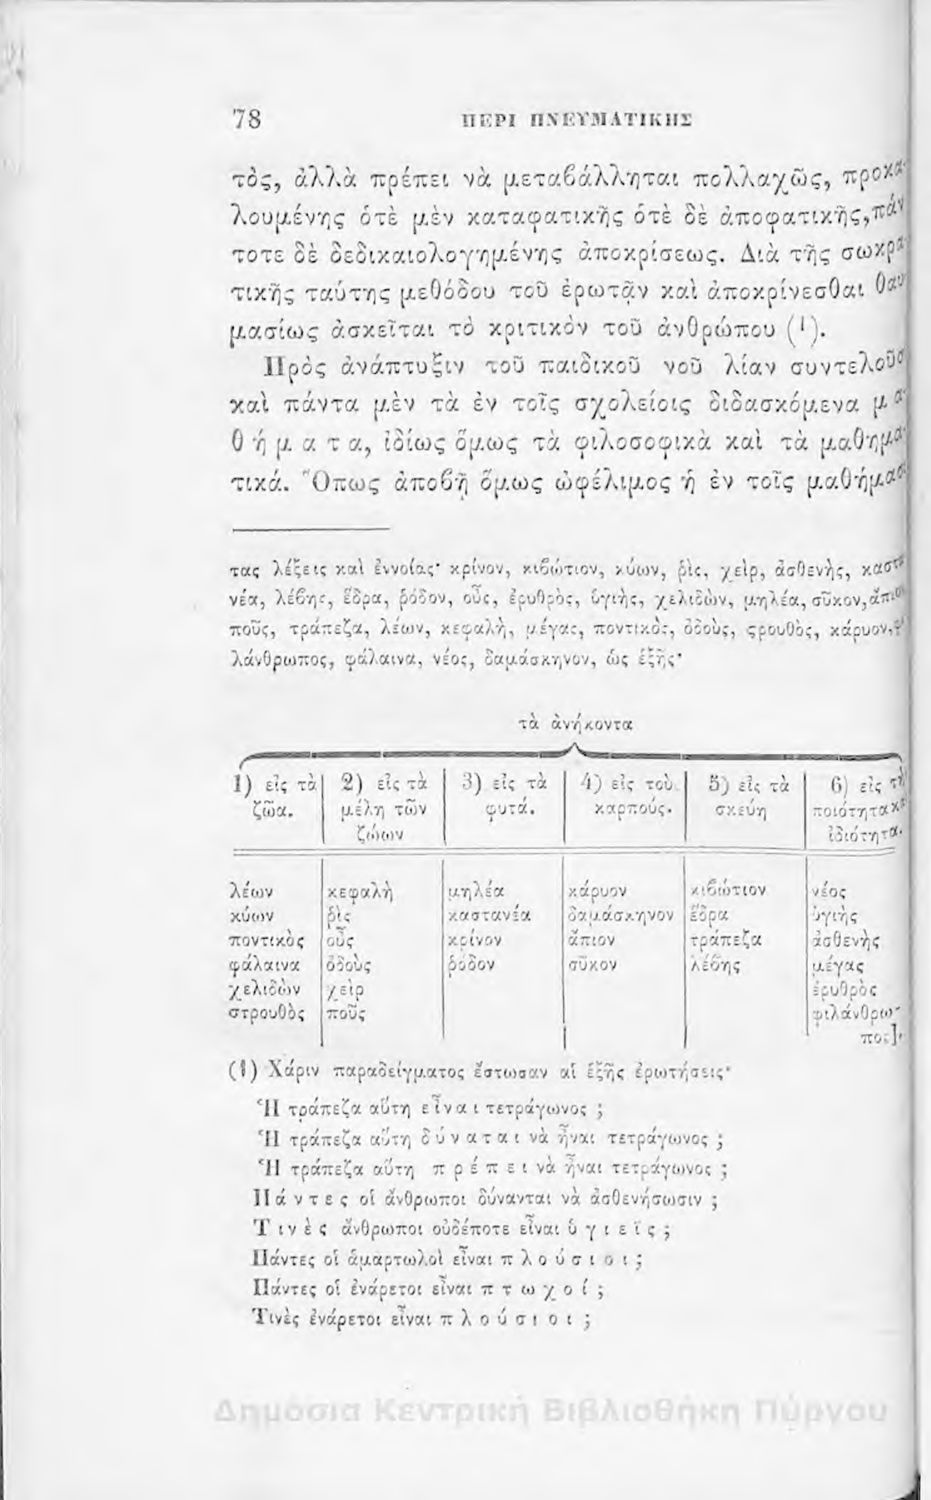 78 ΠΕΡΙ ΠΝΕΥΜΑΤΙΚΗΣ
τὸς, ἀλλὰ πρέπει νὰ μεταβάλληται πολλαχῶς, προκα-
λουμένης ὁτὲ μὲν καταφατικῆς ὁτὲ δὲ ἀποφατικῆς, πάν
τοτε δὲ δεδικαιολογημένης ἀποκρίσεως. Διὰ τῆς σωκρα-
τικῆς ταύτης μεθόδου τοῦ ἐρωτᾷν καὶ ἀποκρίνεσθαι θαυ-
μασίως ἀσκεῖται τὸ κριτικὸν τοῦ ἀνθρώπου (1).
Πρὸς ἀνάπτυξιν τοῦ παιδικοῦ νοῦ λίαν συντελοῦσ
καὶ πάντα μὲν τὰ ἐν τοῖς σχολείοις διδασκόμενα μ α-
θ ή μ α τ α, ἰδίως ὅμως τὰ φιλοσοφικὰ καὶ τὰ μαθημα-
τικά. Ὅπως ἀποβῇ ὅμως ὠφέλιμος ἡ ἐν τοῖς μαθήμασ
τας λέξεις καὶ ἐννοίας· κρίνον, κιβώτιον, κύων, ῥὶς, χεὶρ, ἀσθενὴς, καστα-
νέα, λέβης, ἕδρα, ῥόδον, οὖς, ἐρυθρὸς, ὑγιὴς, χελιδὼν, μηλέα, σῦκον, ἄπιον
ποῦς, τράπεζα, λέων, κεφαλὴ, μέγας, ποντικὸς, ὀδοὺς, ςρουθὸς, κάρυον, φι
λάνθρωπος, φάλαινα, νέος, δαμάσκηνον, ὡς ἑξῆς·
τὰ ἀνήκοντα
1) εἰς τὰ 2) εἰς τὰ 3) εἰς τὰ 4) εἰς τοὺ 5) εἰς τὰ 6) εἰς τὴ
ζῶα. μέλη τῶν φυτά. καρποὺς. σκεύη ποιότητα κα
ζώων ἰδιότητα.
λέων κεφαλὴ μηλέα κάρυον κιβώτιον νέος
κύων ῥὶς καστανέα δαμάσκηνον ἕδρα ὑγιὴς
ποντικὸς οὖς κρίνον ἄπιον τράπεζα ἀσθενὴς
φάλαινα ὀδοὺς ῥόδον σῦκον λέβης μέγας
χελιδὼν χεὶρ ἐρυθρὸς
στρουθὸς ποῦς φιλάνθρω-
πος].
(1) Χάριν παραδείγματος ἔστωσαν αἱ ἑξῆς ἐρωτήσεις·
Ἡ τράπεζα αὕτη ε ἶ ν α ι τετράγωνος ;
Ἡ τράπεζα αὕτη δ ύ ν α τ α ι νὰ ἦναι τετράγωνος ;
Ἡ τράπεζα αὕτη π ρ έ π ε ι νὰ ἦναι τετράγωνος ;
Π ά ν τ ε ς οἱ ἄνθρωποι δύνανται νὰ ἀσθενήσωσιν ;
Τ ι ν ὲ ς ἄνθρωποι οὐδέποτε εἶναι ὑ γ ι ε ῖ ς ;
Πάντες οἱ ἁμαρτωλοὶ εἶναι π λ ο ύ σ ι ο ι ;
Πάντες οἱ ἐνάρετοι εἶναι π τ ω χ ο ί ;
Τινὲς ἐνάρετοι εἶναι π λ ο ύ σ ι ο ι ;
Δημόσια Κεντρική Βιβλιοθήκη Πύργου